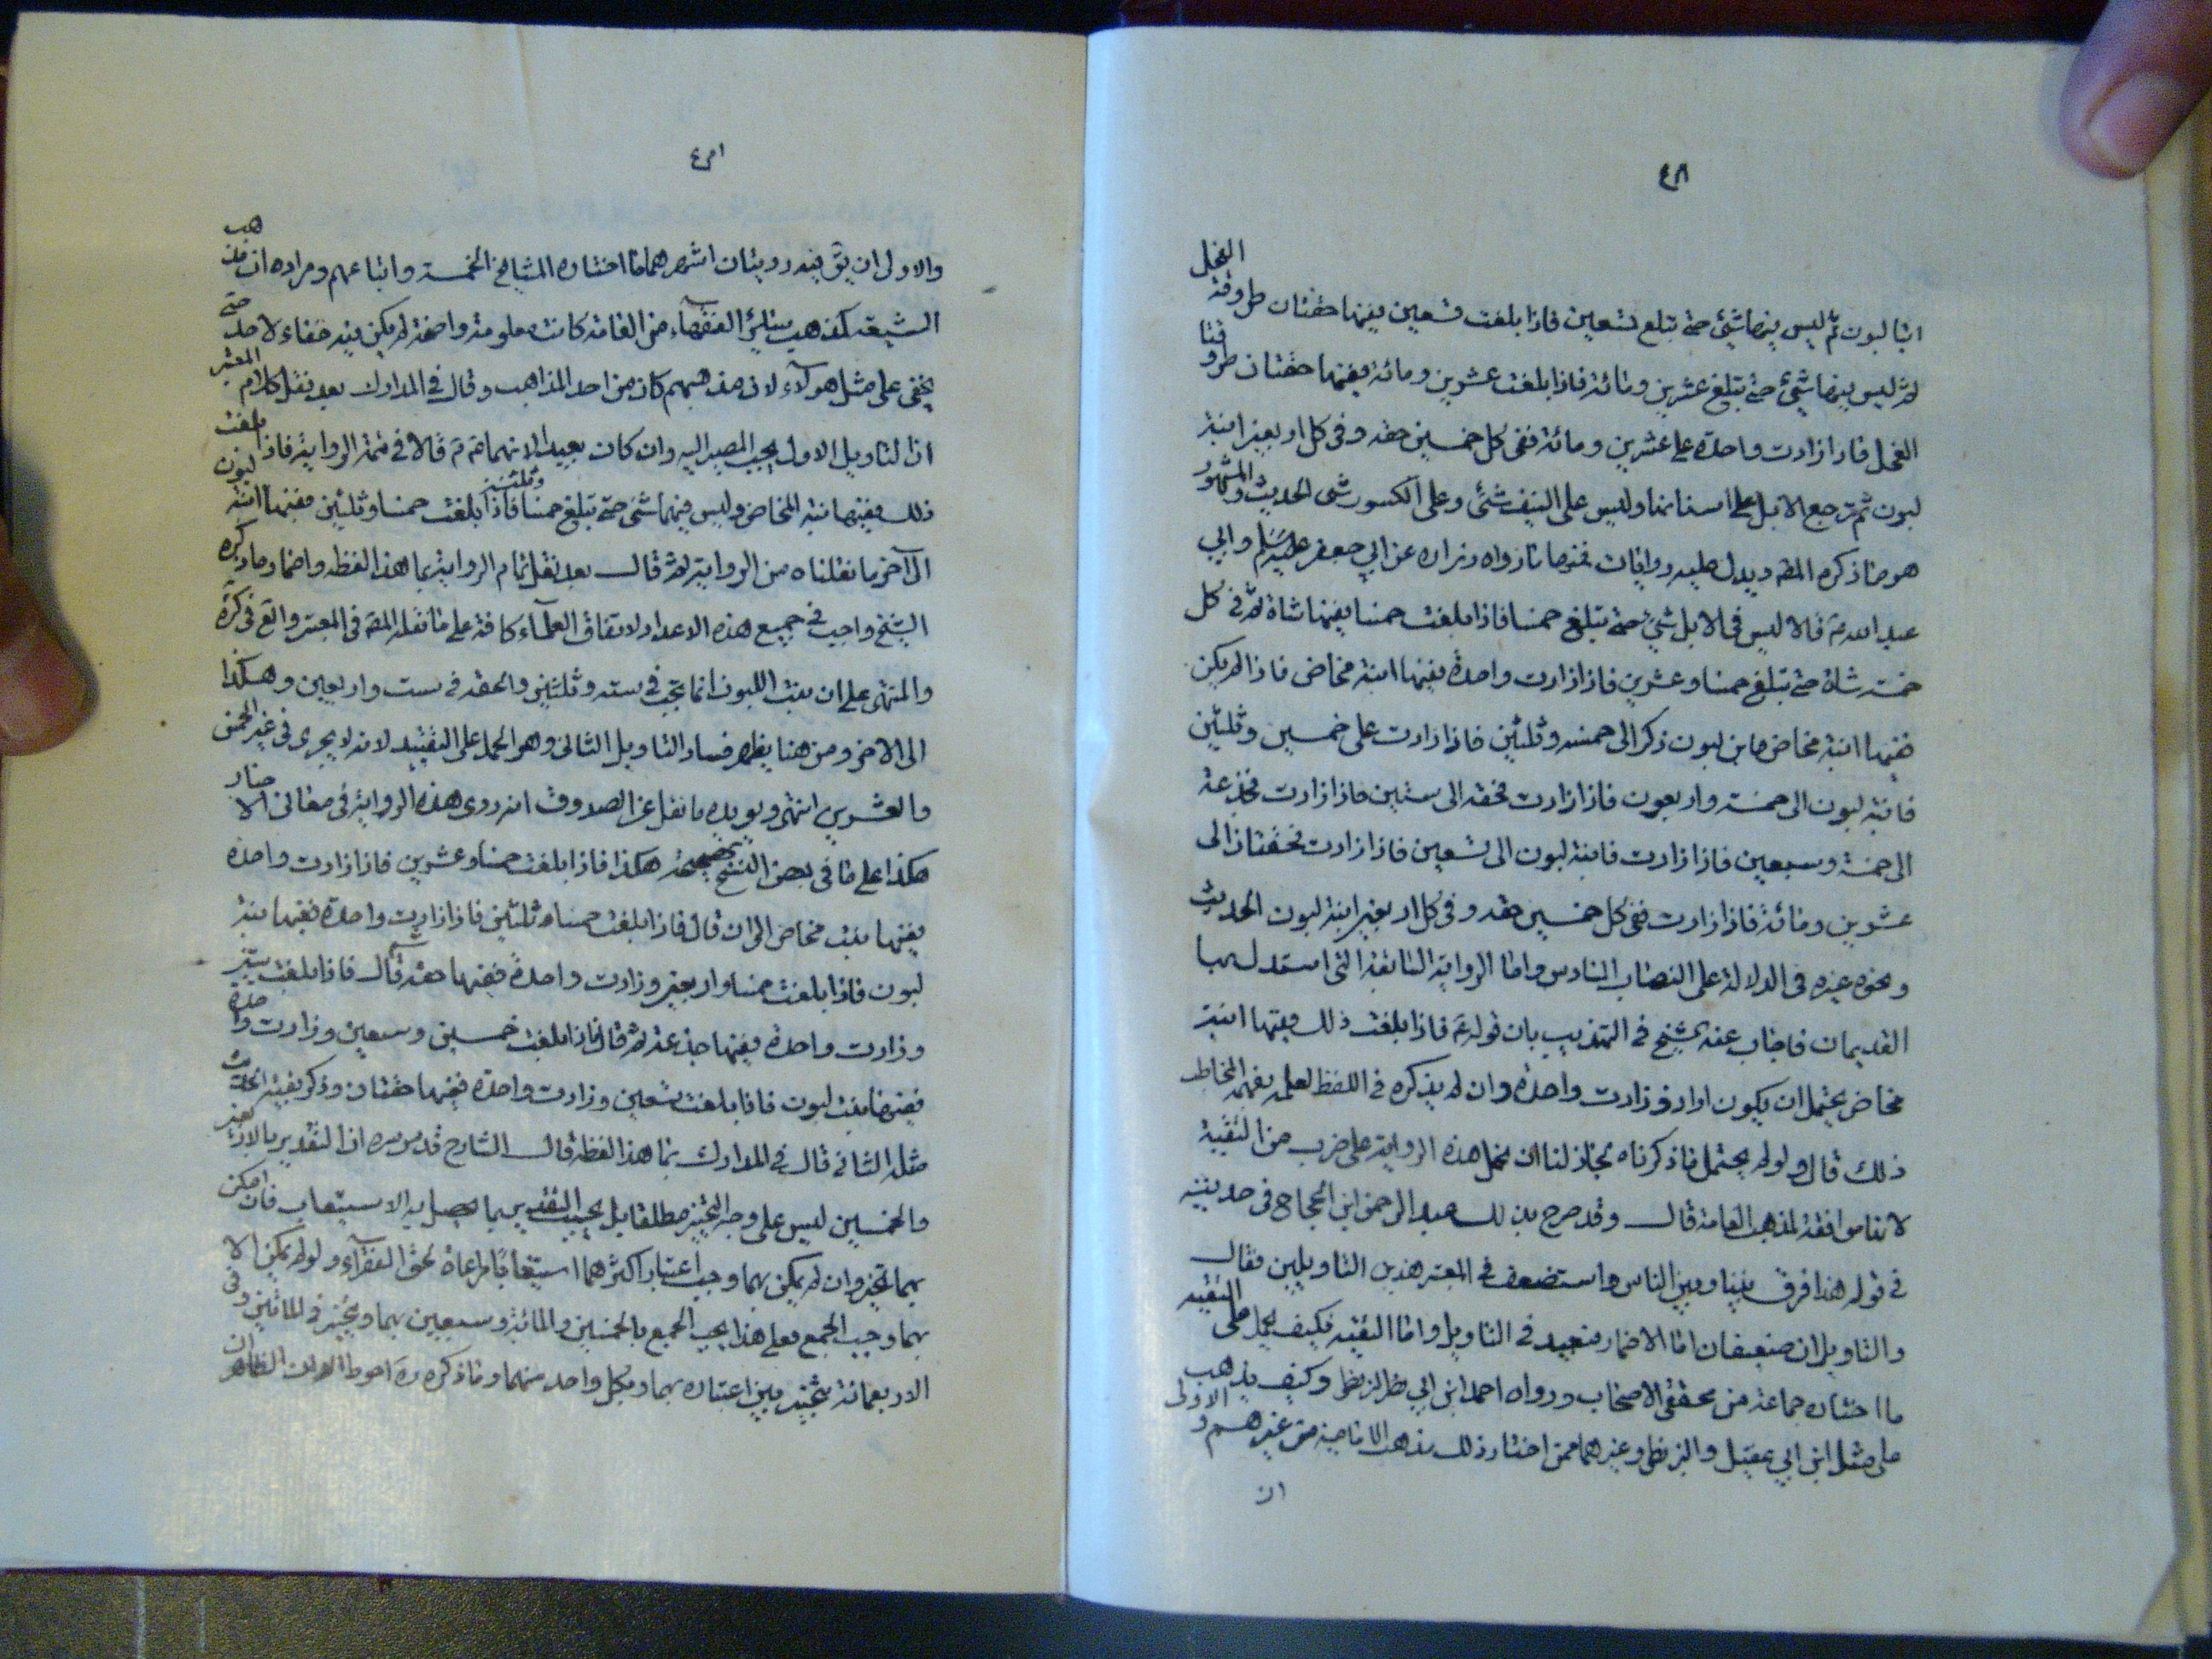 ٤٨
ابنتا لبون ثم ليس فيها شيئ حتى تبلغ تسعين فاذا بلغت تسعين ففيها حقتان طروقة الفحل
ثم ليس فيها شيئ حتى تبلغ عشرين ومائة فاذا بلغت عشرين ومائة ففيها حقتان طروقتا
الفحل فاذا زادت واحدة على عشرين ومائة ففى كل خمسين حقه وفى كل اربعين ابنة
لبون ثم ترجع الابل على اسنانها وليس على النيف شئ وعلى الكسور شى الحديث والمشهور
هو ما ذكره المصه ويدل عليه روايات منها ما رواه زراره عن ابي جعفر عليه سلم وابي
عبد الله ع قالا ليس فى الابل شئ حتى تبلغ خمسا فاذا بلغت خمسا ففيها شاة ثم فى كل
خمسة شاة حتى تبلغ خمسا وعشرين فاذا زادت واحدة ففيها ابنة مخاض فاذا لم يكن
فيها ابنة مخاض فابن لبون ذكر الى خمسه وثلثين فاذا زادت على خمسين وثلثين
فابنة لبون الى خمسة واربعون فاذا زادت فحقه الى ستين فاذا زادت فجذعة
الى خمسة وسبعين فاذا زادت فابنة لبون الى تسعين فاذا زادت فحقتان الى
عشرين ومائة فاذا زادت ففى كل خمسين حقه وفى كل اربعين ابنة لبون الحديث
ونحوه غيره فى الدلالة على النصاب السادس واما الرواية السابقة التى استدل بها
القديمان فاجاب عنه الشيخ فى التهذيب بان قوله ع فاذا بلغت ذلك ففيها ابنة
مخاض يحتمل ان يكون اراد وزادت واحدة وان لم يذكره فى اللفظ لعلمه بفهم المخاطب
ذلك قال ولو لم يحتمل ما ذكرناه لجاز لنا ان نحمل هذه الرواية على ضرب من التقية
لانها موافقة لمذهب العامة قال وقد صرح بذلك عبد الرحمن ابن الحجاج فى حديثه
فى قوله هذا فرق بيننا وبين الناس واستضعف فى المعتبر هذين التاويلين فقال
والتاويلان ضعيفان اما الاضمار فبعيد فى التاويل واما التقيه فكيف يحمل على التقيه
ما اختاره جماعة من محققى الاصحاب ورواه احمد ابن ابي نصر البزنطى وكيف يذهب
على مثل ابن ابي عقيل والبزنطى وغيرهما ممن اختار ذلك مذهب الامامية من غيرهم والاولى
ان
والاولى ان يق فيه روايتان اشهرهما ما اختاره المشايخ الخمسة واتباعهم ومراده ان مذهب
الشيعة كمذهب سائر الفقهاء من العامة كانت معلومة واضحة لم يكن فيه خفاء لاحد حتى
يخفى على مثل هولاء لان مذهبهم كان من احد المذاهب وقال فى المدارك بعد نقل كلام المعتبر
ان التاويل الاول يجب المصير اليه وان كان بعيدا لانهما ع قالا فى تتمة الرواية فاذا بلغت
ذلك ففيها بنة المخاض وليس فيها شئ حتى تبلغ خمسا وثلثين فاذا بلغت خمسا وثلثين ففيها ابنة لبون
الى آخر ما نقلناه من الرواية ثم قال بعد نقل تمام الرواية بما هذا لفظه واضمار ما ذكره
الشيخ واجب فى جميع هذه الاعداد لاتفاق العلماء كافة على ما نقله المصه فى المعتبر والع فى كره
والمنتهى على ان بنت اللبون انما تجب فى سته وثلثين والحقه فى ست واربعين وهكذا
الى الاخر ومن هنا يظهر فساد التاويل الثانى وهو الحمل على التقييد لانه لا يجرى فى غير الخمس
والعشرين انتهى ويويده ما نقل عن الصدوق انه روى هذه الرواية فى معانى الاخبار
هكذا على ما فى بعض النسخ الصحيحة هكذا فاذا بلغت خمسا وعشرين فاذا زادت واحدة
ففيها بنت مخاض الى ان قال فاذا بلغت خمسا وثلثين فاذا زادت واحدة ففيها ابنة
لبون فاذا بلغت خمسا واربعين وزادت واحدة ففيها حقه ثم قال فاذا بلغت ستين
وزادت واحدة ففيها جذعة ثم قال فاذا بلغت خمسين وسبعين وزادت واحدة
ففيها بنت لبون فاذا بلغت تسعين وزادت واحدة ففيها حقتان وذكر بقية الحديث
مثله الثانى قال فى المدارك بما هذا لفظه قال الشارح قدس سره ان التقدير بالاربعين
والخمسين ليس على وجه التخيير مطلقا بل يجب التقدير بما يحصل به الاستيعاب فان امكن
بهما تخير وان لم يمكن بهما وجب اعتبار اكثرهما استيعابا مراعاة لحق الفقراء ولو لم يمكن الا
بهما وجب الجمع فعلى هذا يجب الجمع بالخمسين والمائة وسبعين بهما ويتخير فى المائتين وفى
الاربعمائة يتخير بين اعتباره بهما وبكل واحد منهما وما ذكره ره احوط الا ان الظاهر